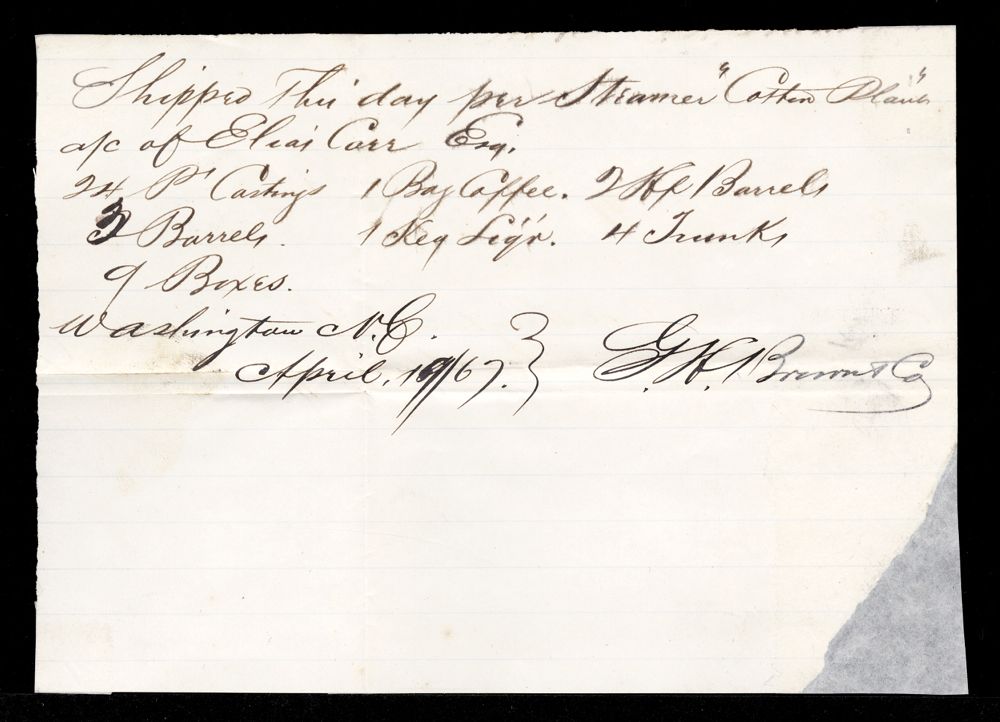 Shipped This day per Steamer "Cotton Plant"
a/c of Elias Carr Esq.
24 Ps Castings 1 Bag Coffee. 2 Hf Barrels
3 Barrels. 1 Keg Liq'r. 4 Trunks
9 Boxes.
Washington N.C.
April, 19/67. G. H. Brown & Co